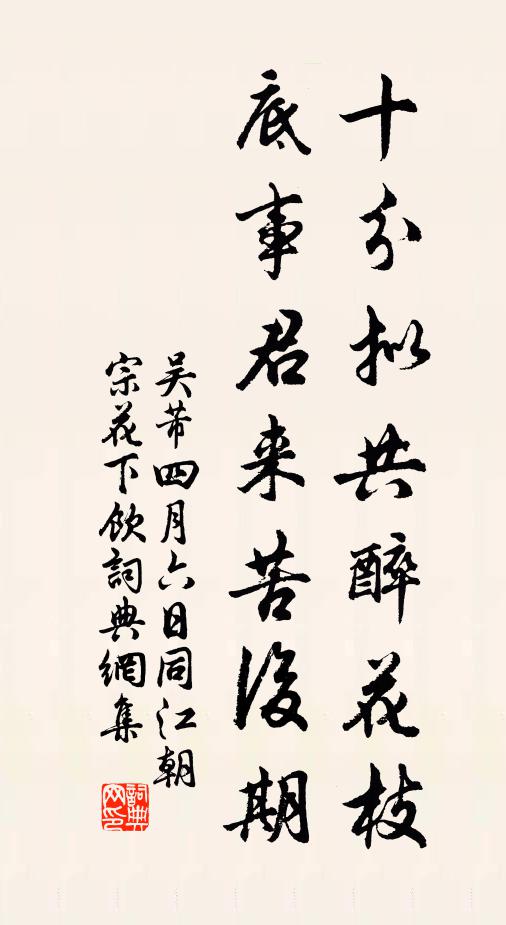 十分拟共醉花枝
底事君来苦後期
吴芾四月六日同江朝
宗花下飲詞典網集
詞典
网印